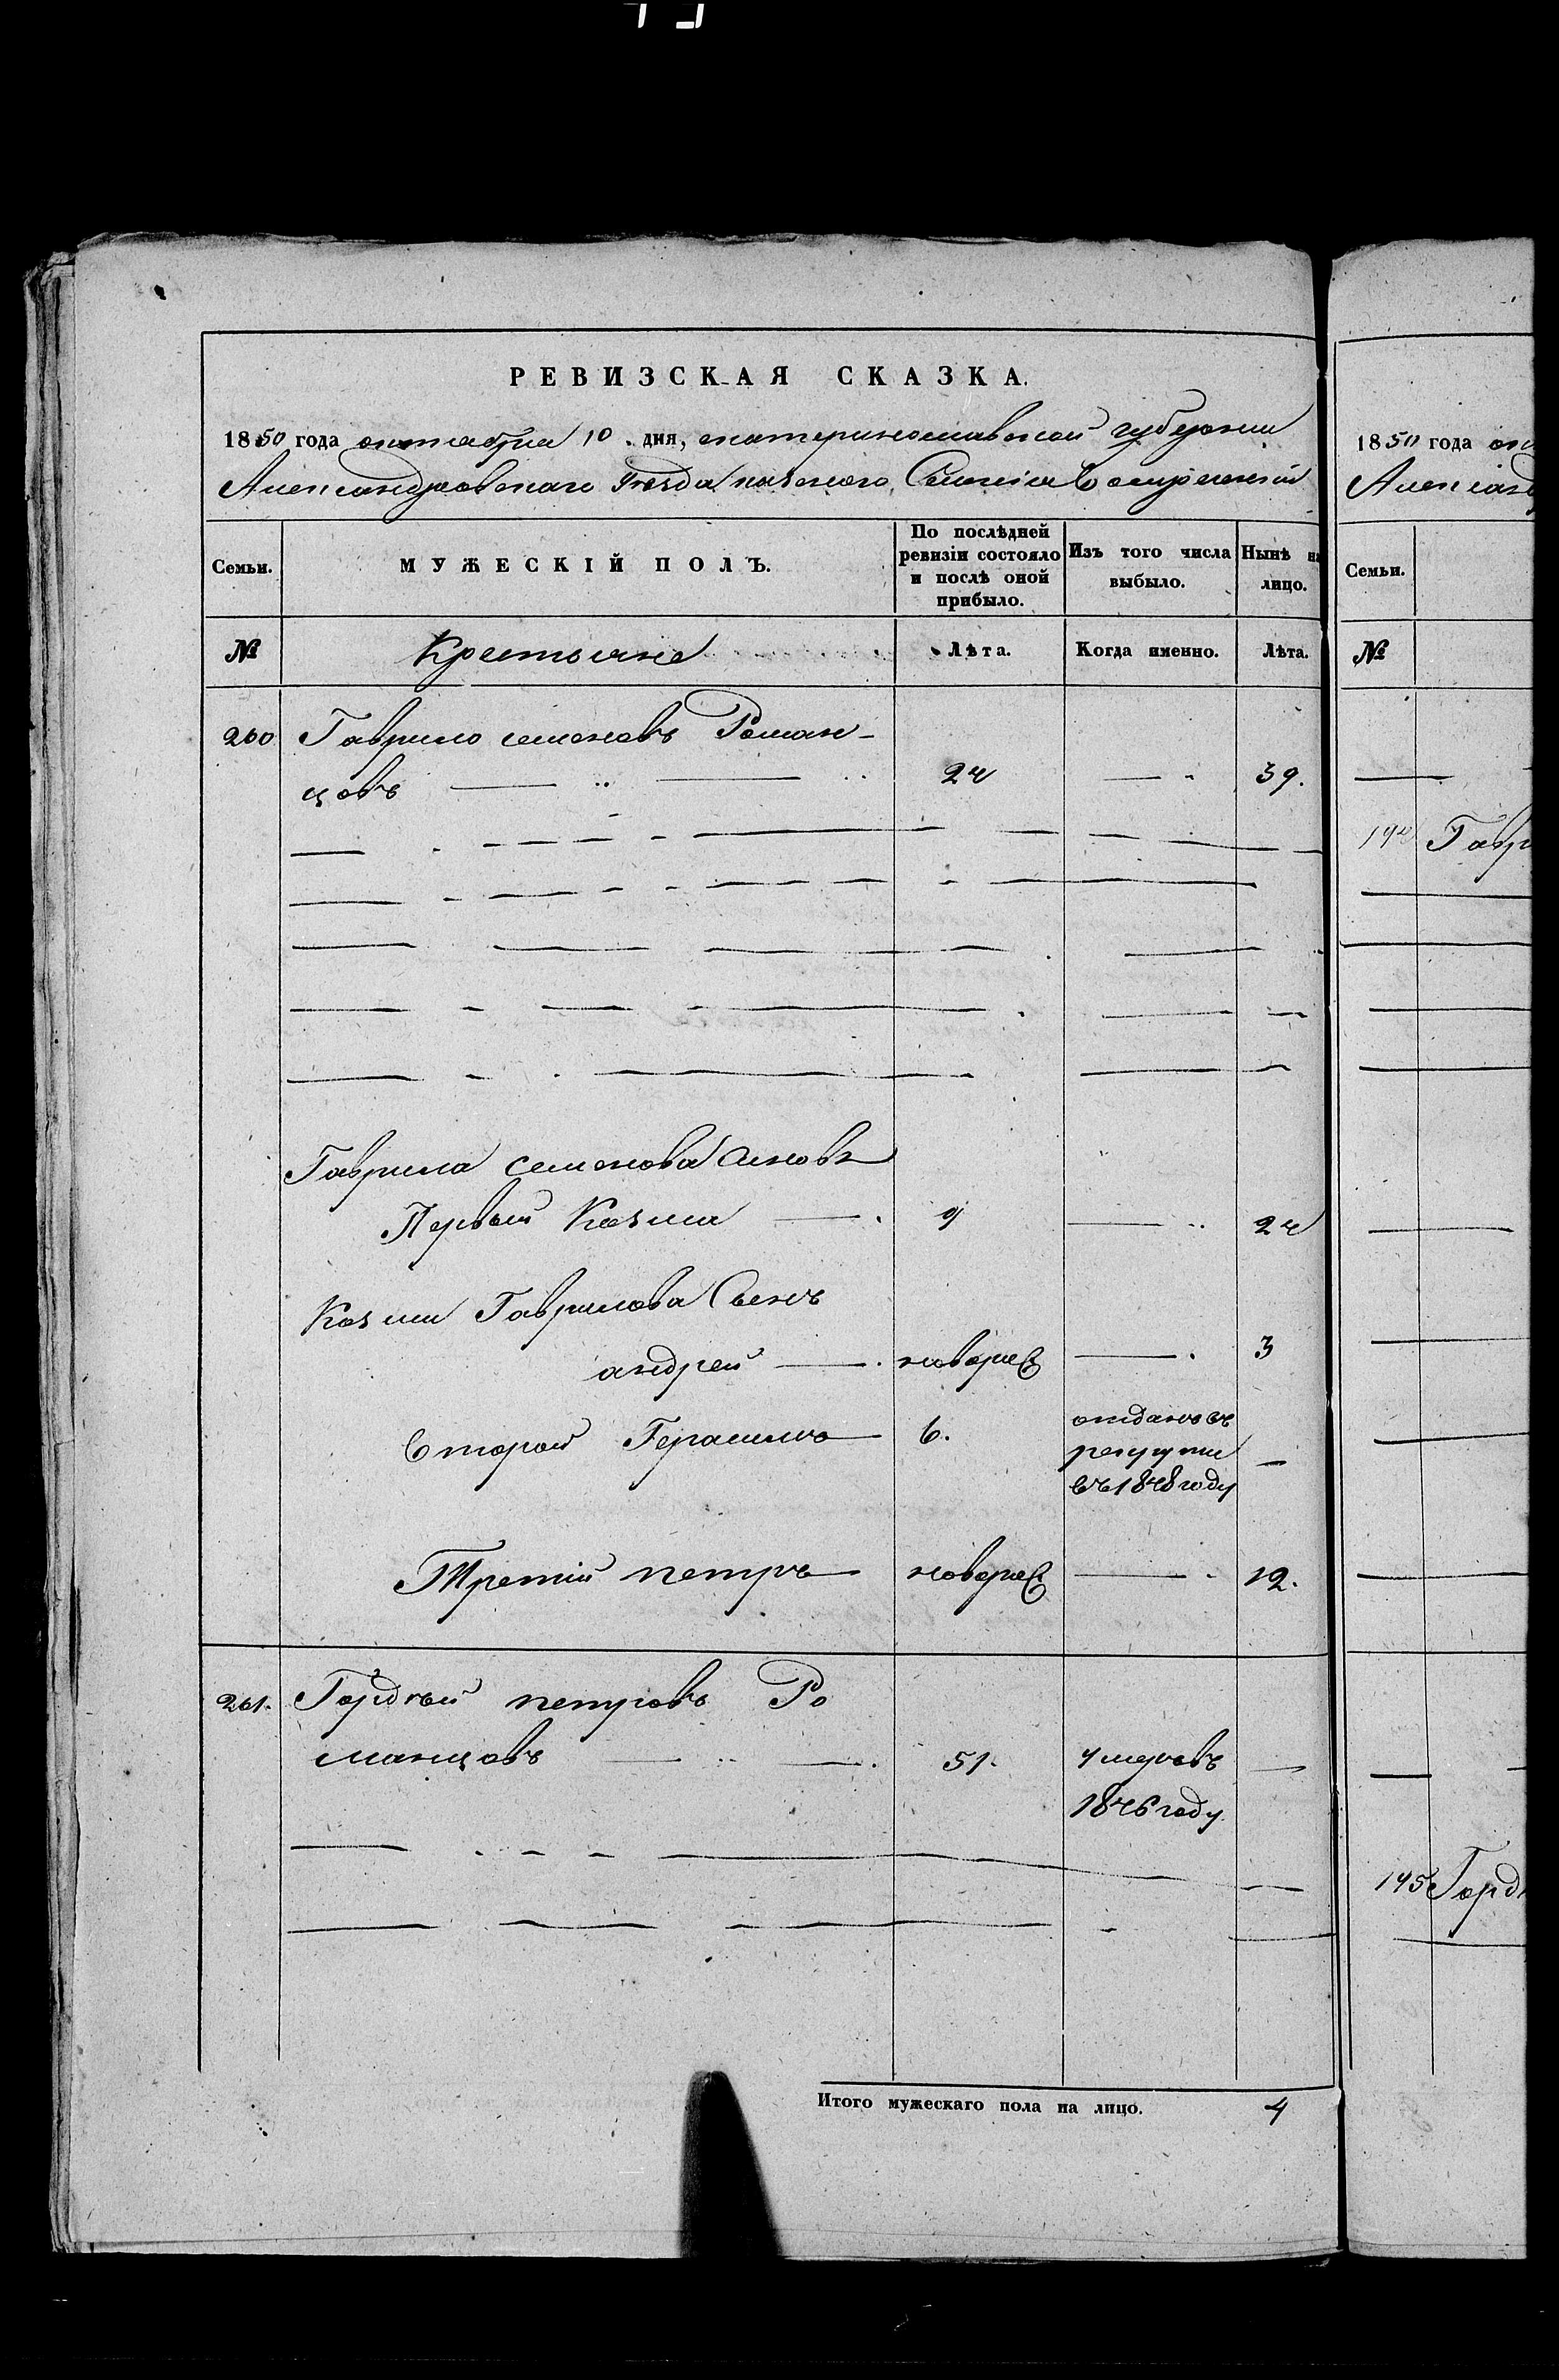 РЕВИЗСКАЯ СКАЗКА.
1850 года октября 10 дня, екатеринославской губернии
Александровскаго Уезда казеного Селения
Семьи.
МУЖЕСКІЙ ПОЛЪ.
По послѣдней ревизіи состояло и послѣ оной прибыло.
Изъ того числа выбыло.
Нынѣ на лицо.
№
Крестьяне
Лѣта.
Когда именно.
Лѣта.
260 Гаврило семеновъ Роман-
цовъ 24 39.
Гаврила семенова сыновья
Первый Козма 9 24
Козми Гаврилова Сынъ
андрей новорж 3
Второй Герасимъ 6. отданъ въ
рекруты
въ 1848 году
Третій петръ новорж 12.
261. Гордѣй петровъ Ро
манцовъ 51. умеръ въ
1846 году
Итого мужескаго пола на лицо. 4
1850 года
Семьи.
№
Гавр
195 Горд